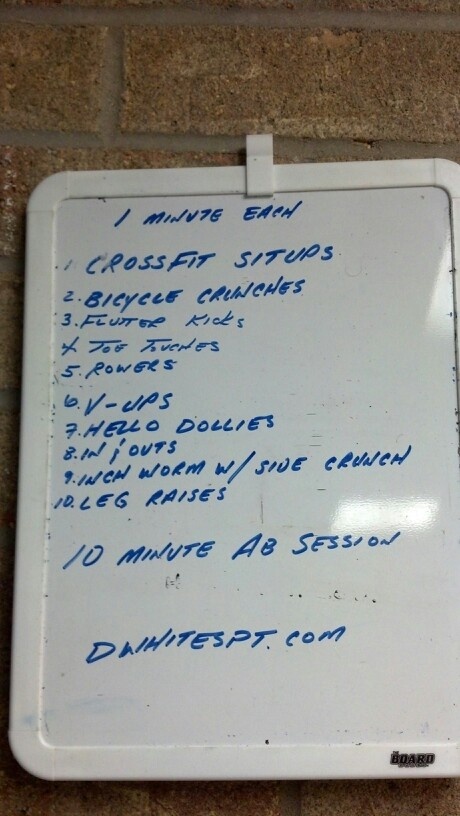 1 MINUTE EACH
1 CROSSFIT SITUPS
2. BICYCLE CRUNCHES
3. FLUTTER KICKS
4 TOE TUCHES
5. ROWERS
6. V-UPS
7. HELLO DOLLIES
8. IN ; OUTS
9. INCH WORM W/ SIDE CRUNCH
10. LEG RAISES
10 MINUTE AB SESSION
DWHITESPT.COM
THE BOARD